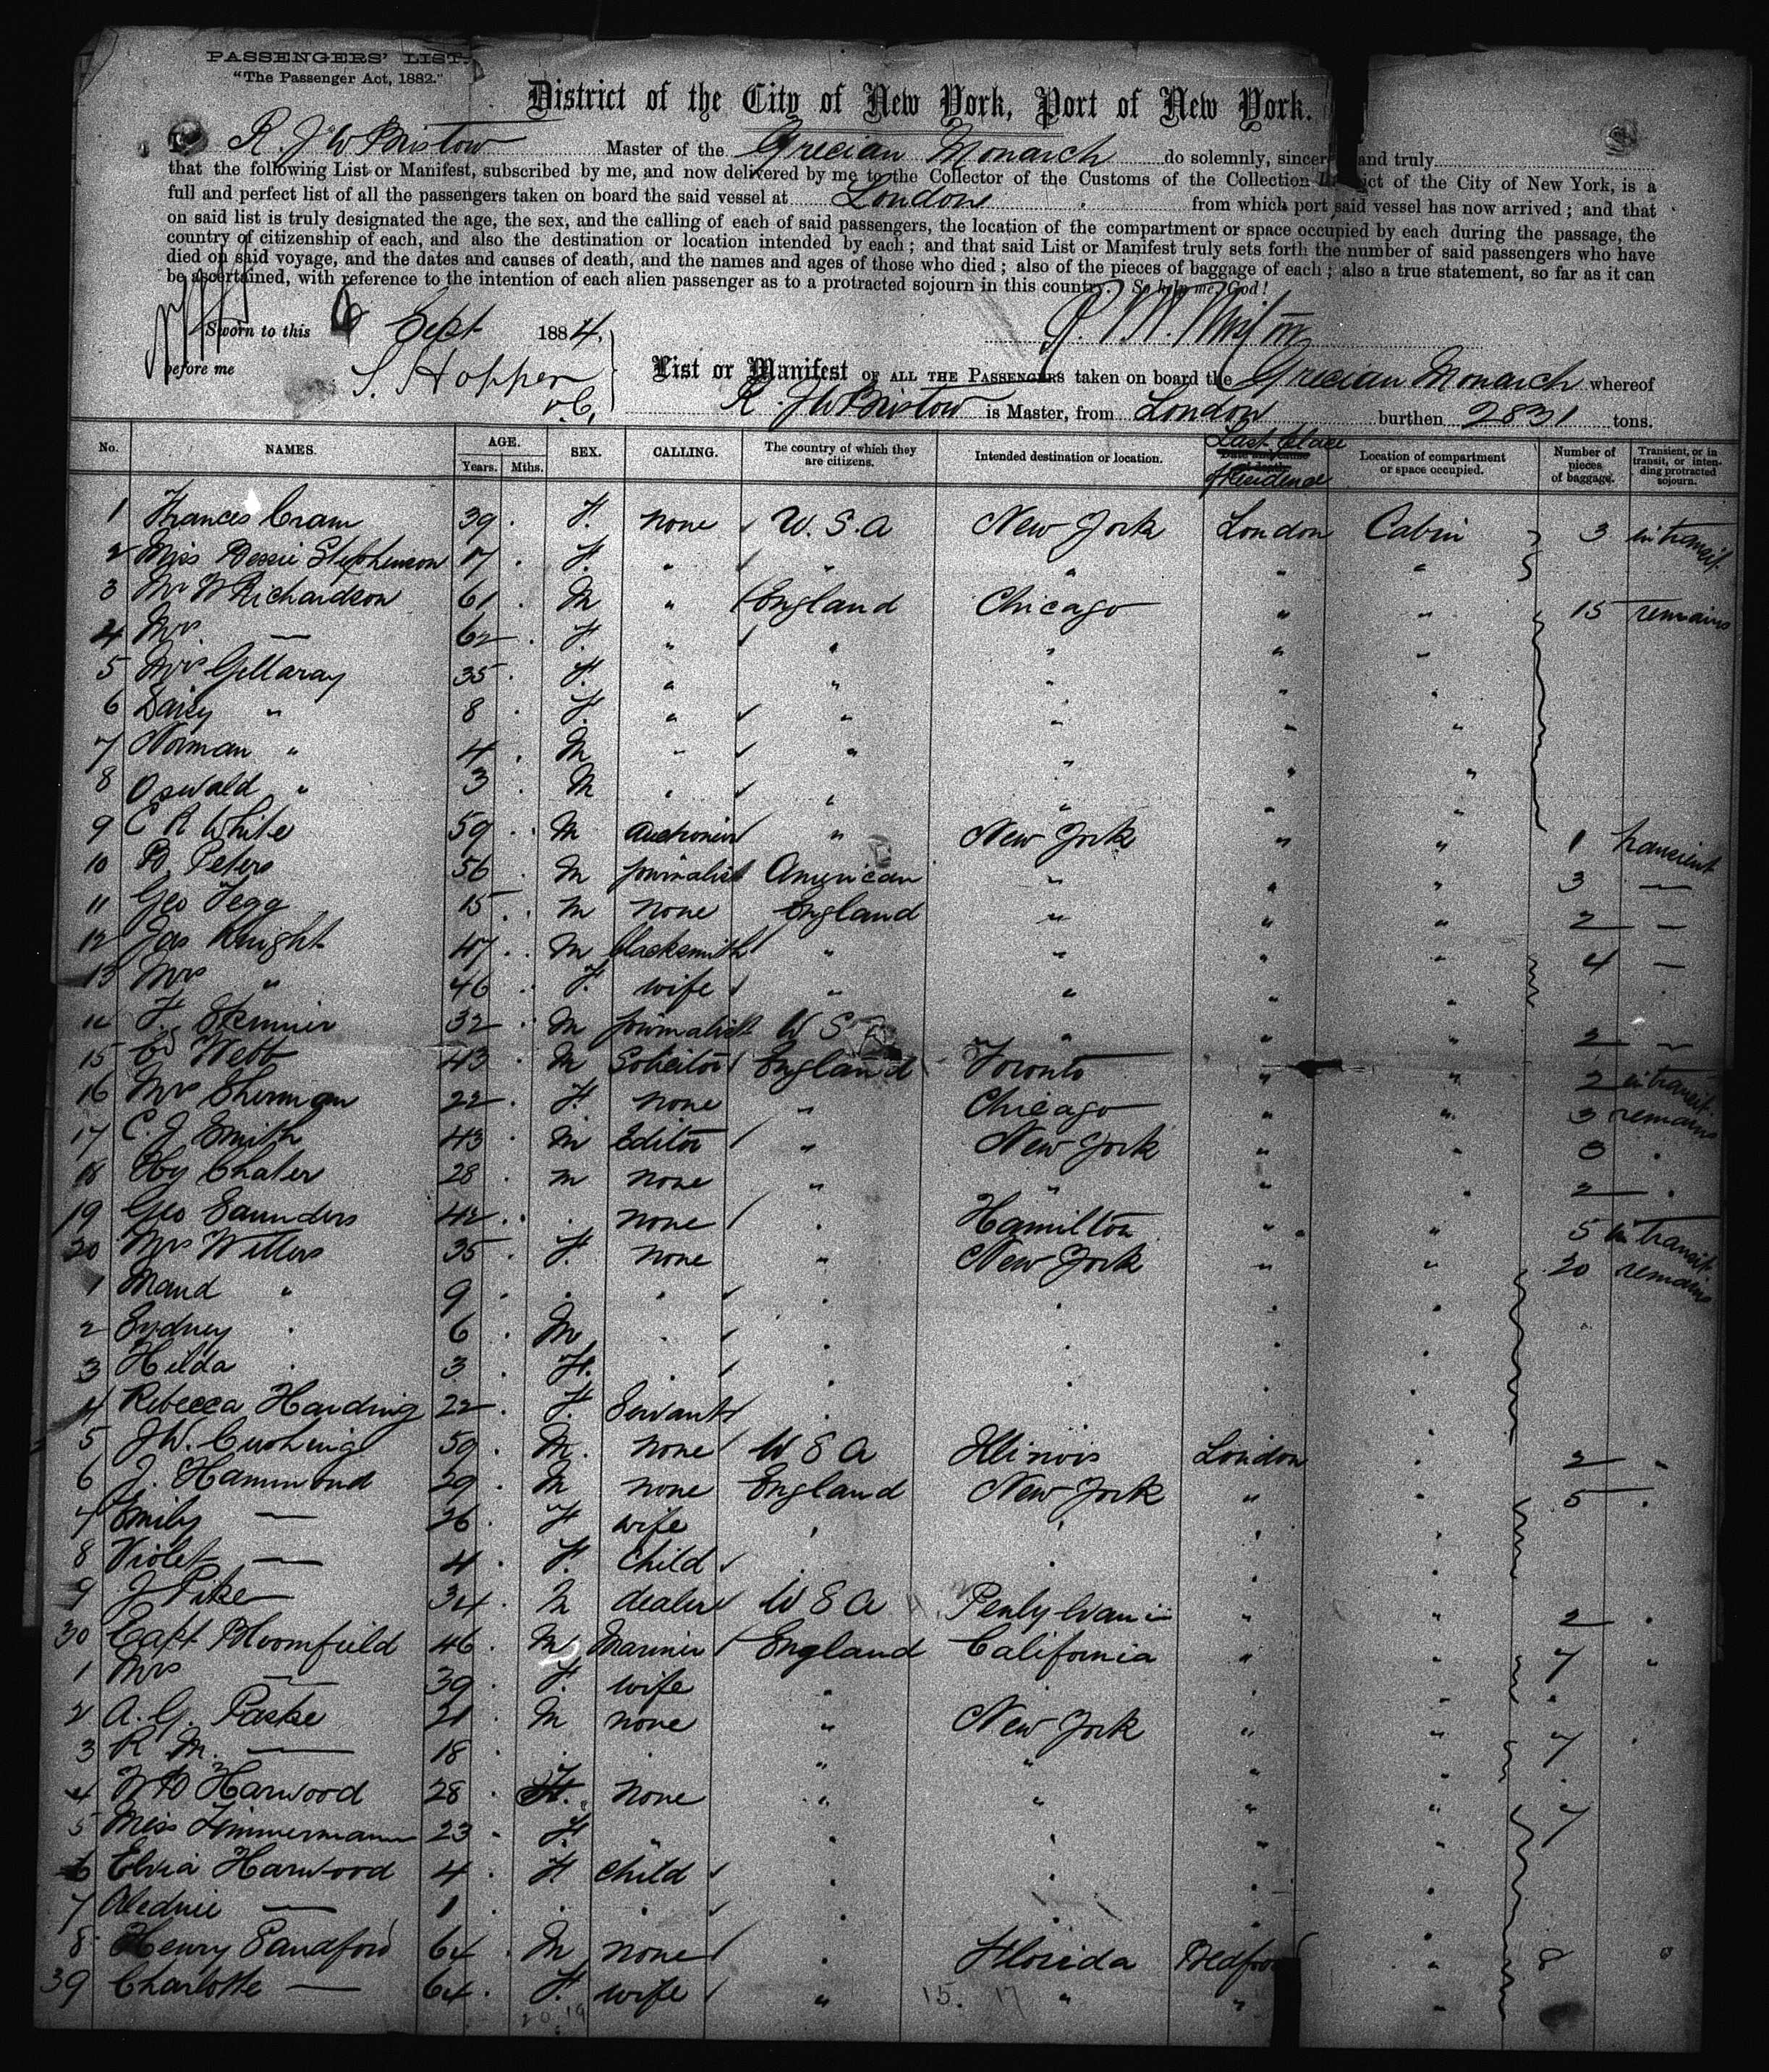 PASSENGERS' LIST.
"The Passenger Act, 1882."
District of the City of New York, Port of New York.
I, R. J W Bristow Master of the Grecian Monarch do solemnly, and truly
that the following List or Manifest, subscribed by me, and now delivered by me to the Collector of the Customs of the Collection of the City of New York, is a
full and perfect list of all the passengers taken on board the said vessel at London from which port said vessel has now arrived; and that
on said list is truly designated the age, the sex, and the calling of each of said passengers, the location of the compartment or space occupied by each during the passage, the
country of citizenship of each, and also the destination or location intended by each; and that said List or Manifest truly sets forth the number of said passengers who have
died on said voyage, and the dates and causes of death, and the names and ages of those who died; also of the pieces of baggage of each; also a true statement, so far as it can
be ascertained, with reference to the intention of each alien passenger as to a protracted sojourn in this country. So help me God!
Sworn to this 6 Sept 1884.
before me S. Hopper
List or Manifest OF ALL THE PASSENGERS taken on board the Grecian Monarch whereof
R. J W Bristow is Master, from London burthen 2831 tons.
No. NAMES. AGE. Years. Mths. SEX. CALLING. The country of which they are citizens. Intended destination or location. Last Place of Residence Location of compartment or space occupied. Number of pieces of baggage. Transient, or in transit, or intending protracted sojourn.
1 Frances Cram 39 F. none U.S.A New York London Cabin 3 in transit
2 Miss Bessie Stephenson 17 F. " " " " "
3 Mr W Richardson 61 M " England Chicago " " 15 remains
4 Mrs — 62 F. " " " " "
5 Mrs Gillaray 35 F. " " " " "
6 Daisy " 8 F. " " " " "
7 Norman " 4 M " " " " "
8 Oswald " 3 M " " " " "
9 C R White 59 M Auctioneer " New York " " 1 transient
10 B Peters 56 M journalist American " " " 3 —
11 Geo Tegg 15 M none England " " " 2 —
12 Jas Knight 47 M blacksmith " " " " 4 —
13 Mrs " 46 F. wife " " " "
14 F. Skinner 32 M journalist U S " " " 2 —
15 Webb 43 M Solicitor England Toronto " " 2 in transit
16 Mrs Sherman 22 F. none " Chicago " " 3 remains
17 C. J Smith 43 M Editor " New York " "
18 Hy Chater 28 m none " " " " 2 "
19 Geo Saunders 42 none " Hamilton " " 5 in transit
20 Mrs Willers 35 F. none " New York " " 20 remains
1 Maud " 9 " " " " " "
2 Sydney " 6 M " " " " "
3 Hilda " 3 F. " " " " "
4 Rebecca Harding 22 F. Servant " " " "
5 J W. Cushing 59 M. none U S A Illinois London " 2 "
6 J. Hammond 29 M none England New York " " 5 "
7 Emily — 26 F wife " " " "
8 Violet — 4 F. Child " " " "
9 J Pike 34 M dealer U S A Penlylvani " " 2 "
30 Capt Bloomfield 46 M Mariner England California " " 7 "
1 Mrs — 39 F. wife " " " "
2 A. G. Paske 21 M none " New York " " 7 "
3 R M. — 18 " " " " " "
4 W B Harwood 28 F. none " " " " 7
5 Miss Zimmermann 23 F. " " " " "
6 Elvia Harwood 4 F Child " " " "
7 — 1 " " " " " "
8 Henry Sandford 64 M none " Florida Bedford " 8 "
39 Charlotte — 64 F. wife " " " "